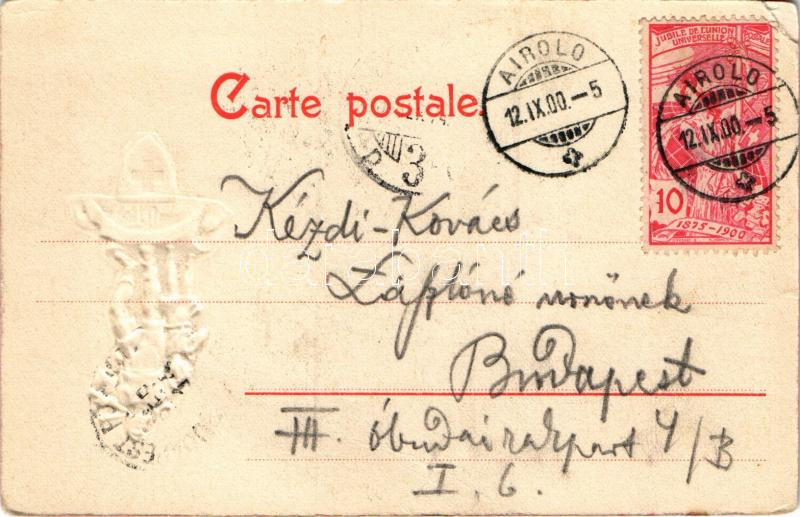 JUBILÉ DE L'UNION
UNIVERSELLE POSTALE
AIROLO
12.IX.00.—5
AIROLO
12.IX.00.—5
10
1875-1900
Carte postale.
3
Kézdi-Kovács
Lászlóné nőnek
Budapest
III. óbudai rakpart 4/B
I, 6.